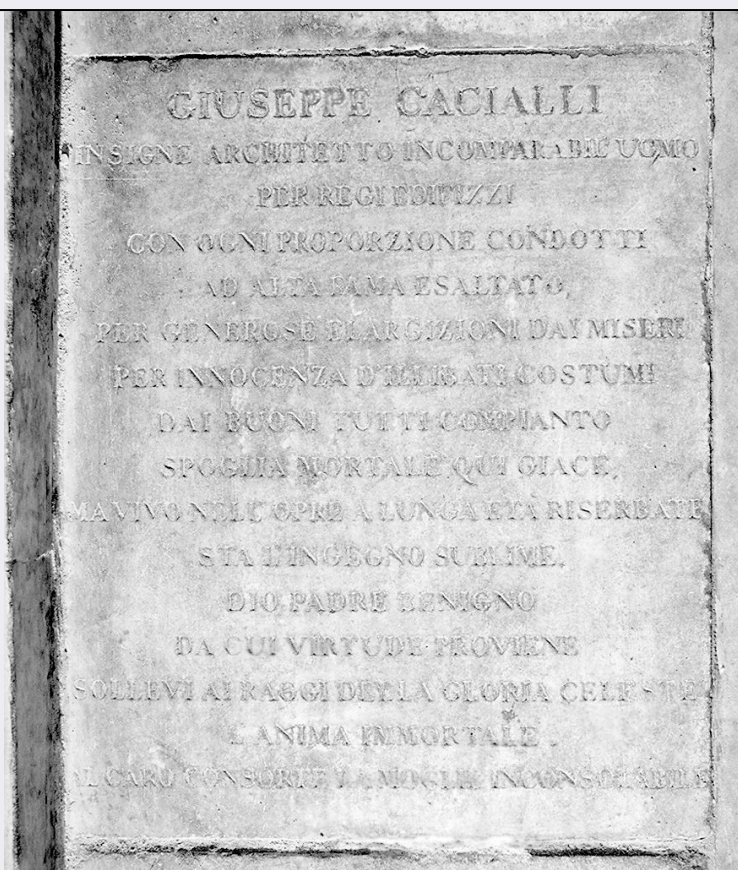 GIUSEPPE CACIALLI
INSIGNE ARCHITETTO INCOMPARABIL' UOMO
PER REGI EDIFIZZI
CON OGNI PROPORZIONE CONDOTTI
AD ALTA FAMA ESALTATO,
PER GENEROSE ELARGIZIONI DAI MISERI
PER INNOCENZA D'ILLIBATI COSTUMI
DAI BUONI TUTTI COMPIANTO
SPOGLIA MORTALE QUI GIACE,
MA VIVO NELL' OPRE A LUNGA ETÀ RISERBATE
STA L'INGEGNO SUBLIME.
DIO PADRE BENIGNO
DA CUI VIRTUDE PROVIENE
SOLLEVI AI RAGGI DELLA GLORIA CELESTE
L'ANIMA IMMORTALE.
AL CARO CONSORTE LA MOGLIE INCONSOLABILE